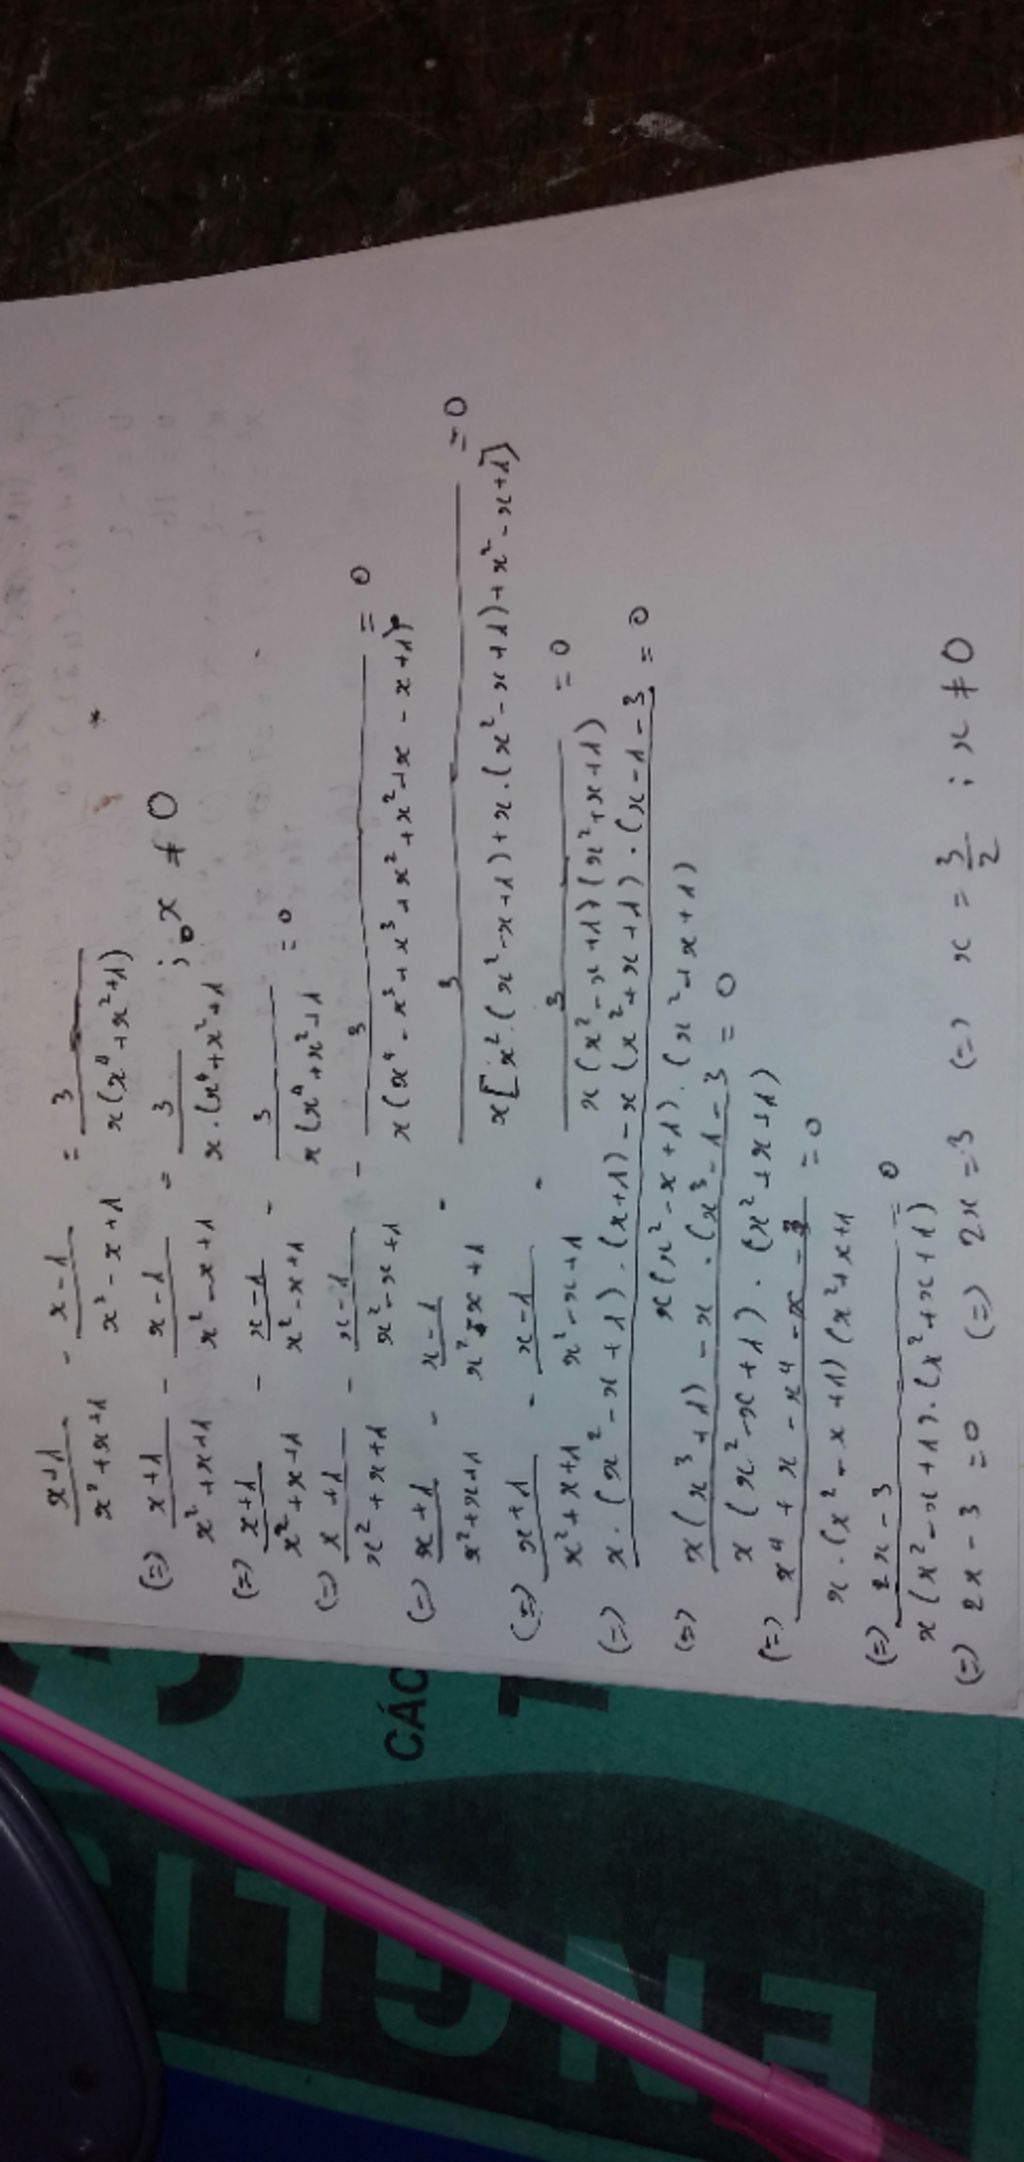 x+1/x²+x+1 - x-1/x²-x+1 = 3/x(x⁴+x²+1)
(=) x+1/x²+x+1 - x-1/x²-x+1 = 3/x.(x⁴+x²+1 ; x ≠ 0
(=) x+1/x²+x+1 - x-1/x²-x+1 - 3/x(x⁴+x²+1 = 0
(=) x+1/x²+x+1 - x-1/x²-x+1 - 3/x(x⁴-x³+x³+x²+x²+x-x+1) = 0
(=) x+1/x²+x+1 - x-1/x²-x+1 - 3/x[x².(x²-x+1)+x.(x²-x+1)+x²-x+1] = 0
(=) x+1/x²+x+1 - x-1/x²-x+1 - 3/x(x²-x+1)(x²+x+1) = 0
(=) x.(x²-x+1).(x+1)-x(x²+x+1).(x-1-3/x(x²-x+1).(x²+x+1) = 0
(=) x(x³+1)-x.(x³-1-3/x(x²-x+1).(x²+x+1) = 0
(=) x⁴+x-x⁴-x-3/x.(x²-x+1)(x²+x+1 = 0
(=) 2x-3/x(x²-x+1).(x²+x+1) = 0
(=) 2x-3=0 (=) 2x=3 (=) x=3/2 ; x≠0
CÁC
ENGLIS